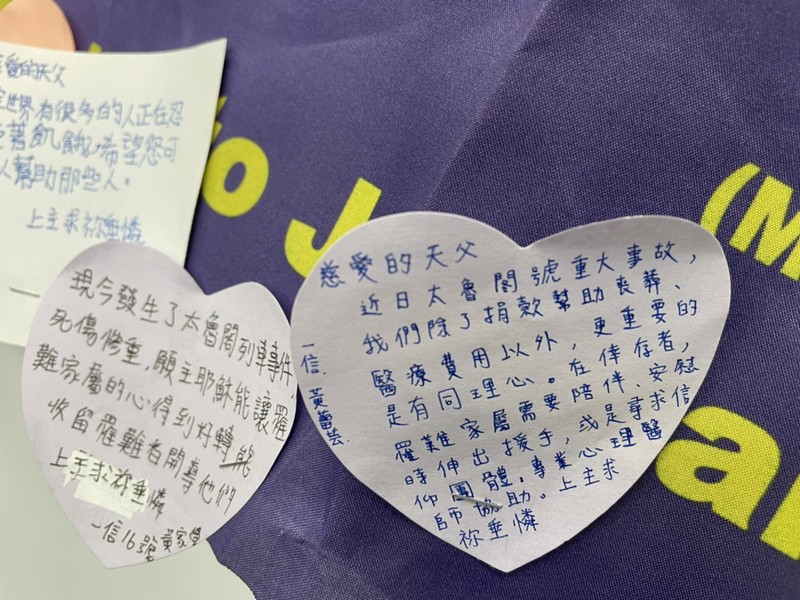 愛的天父
世界有很多的人正在忍
著飢餓,希望您可
以幫助那些人。
上主求祢垂憐
現今發生了太魯閣列車事件,
死傷慘重,願主耶穌能讓罹
難家屬的心得到好轉能
收留罹難者開導他們
上主求祢垂憐
一信16號 黃家
慈愛的天父
近日太魯閣號重大事故,
我們除了捐款幫助喪葬、
醫療費用以外,更重要的
是有同理心。在倖存者,
罹難家屬需要陪伴、安慰
時伸出援手,或是尋求信
仰團體,專業心理醫
師協助。上主求
祢垂憐
一信. 黃蕾芸
o J
(M
an